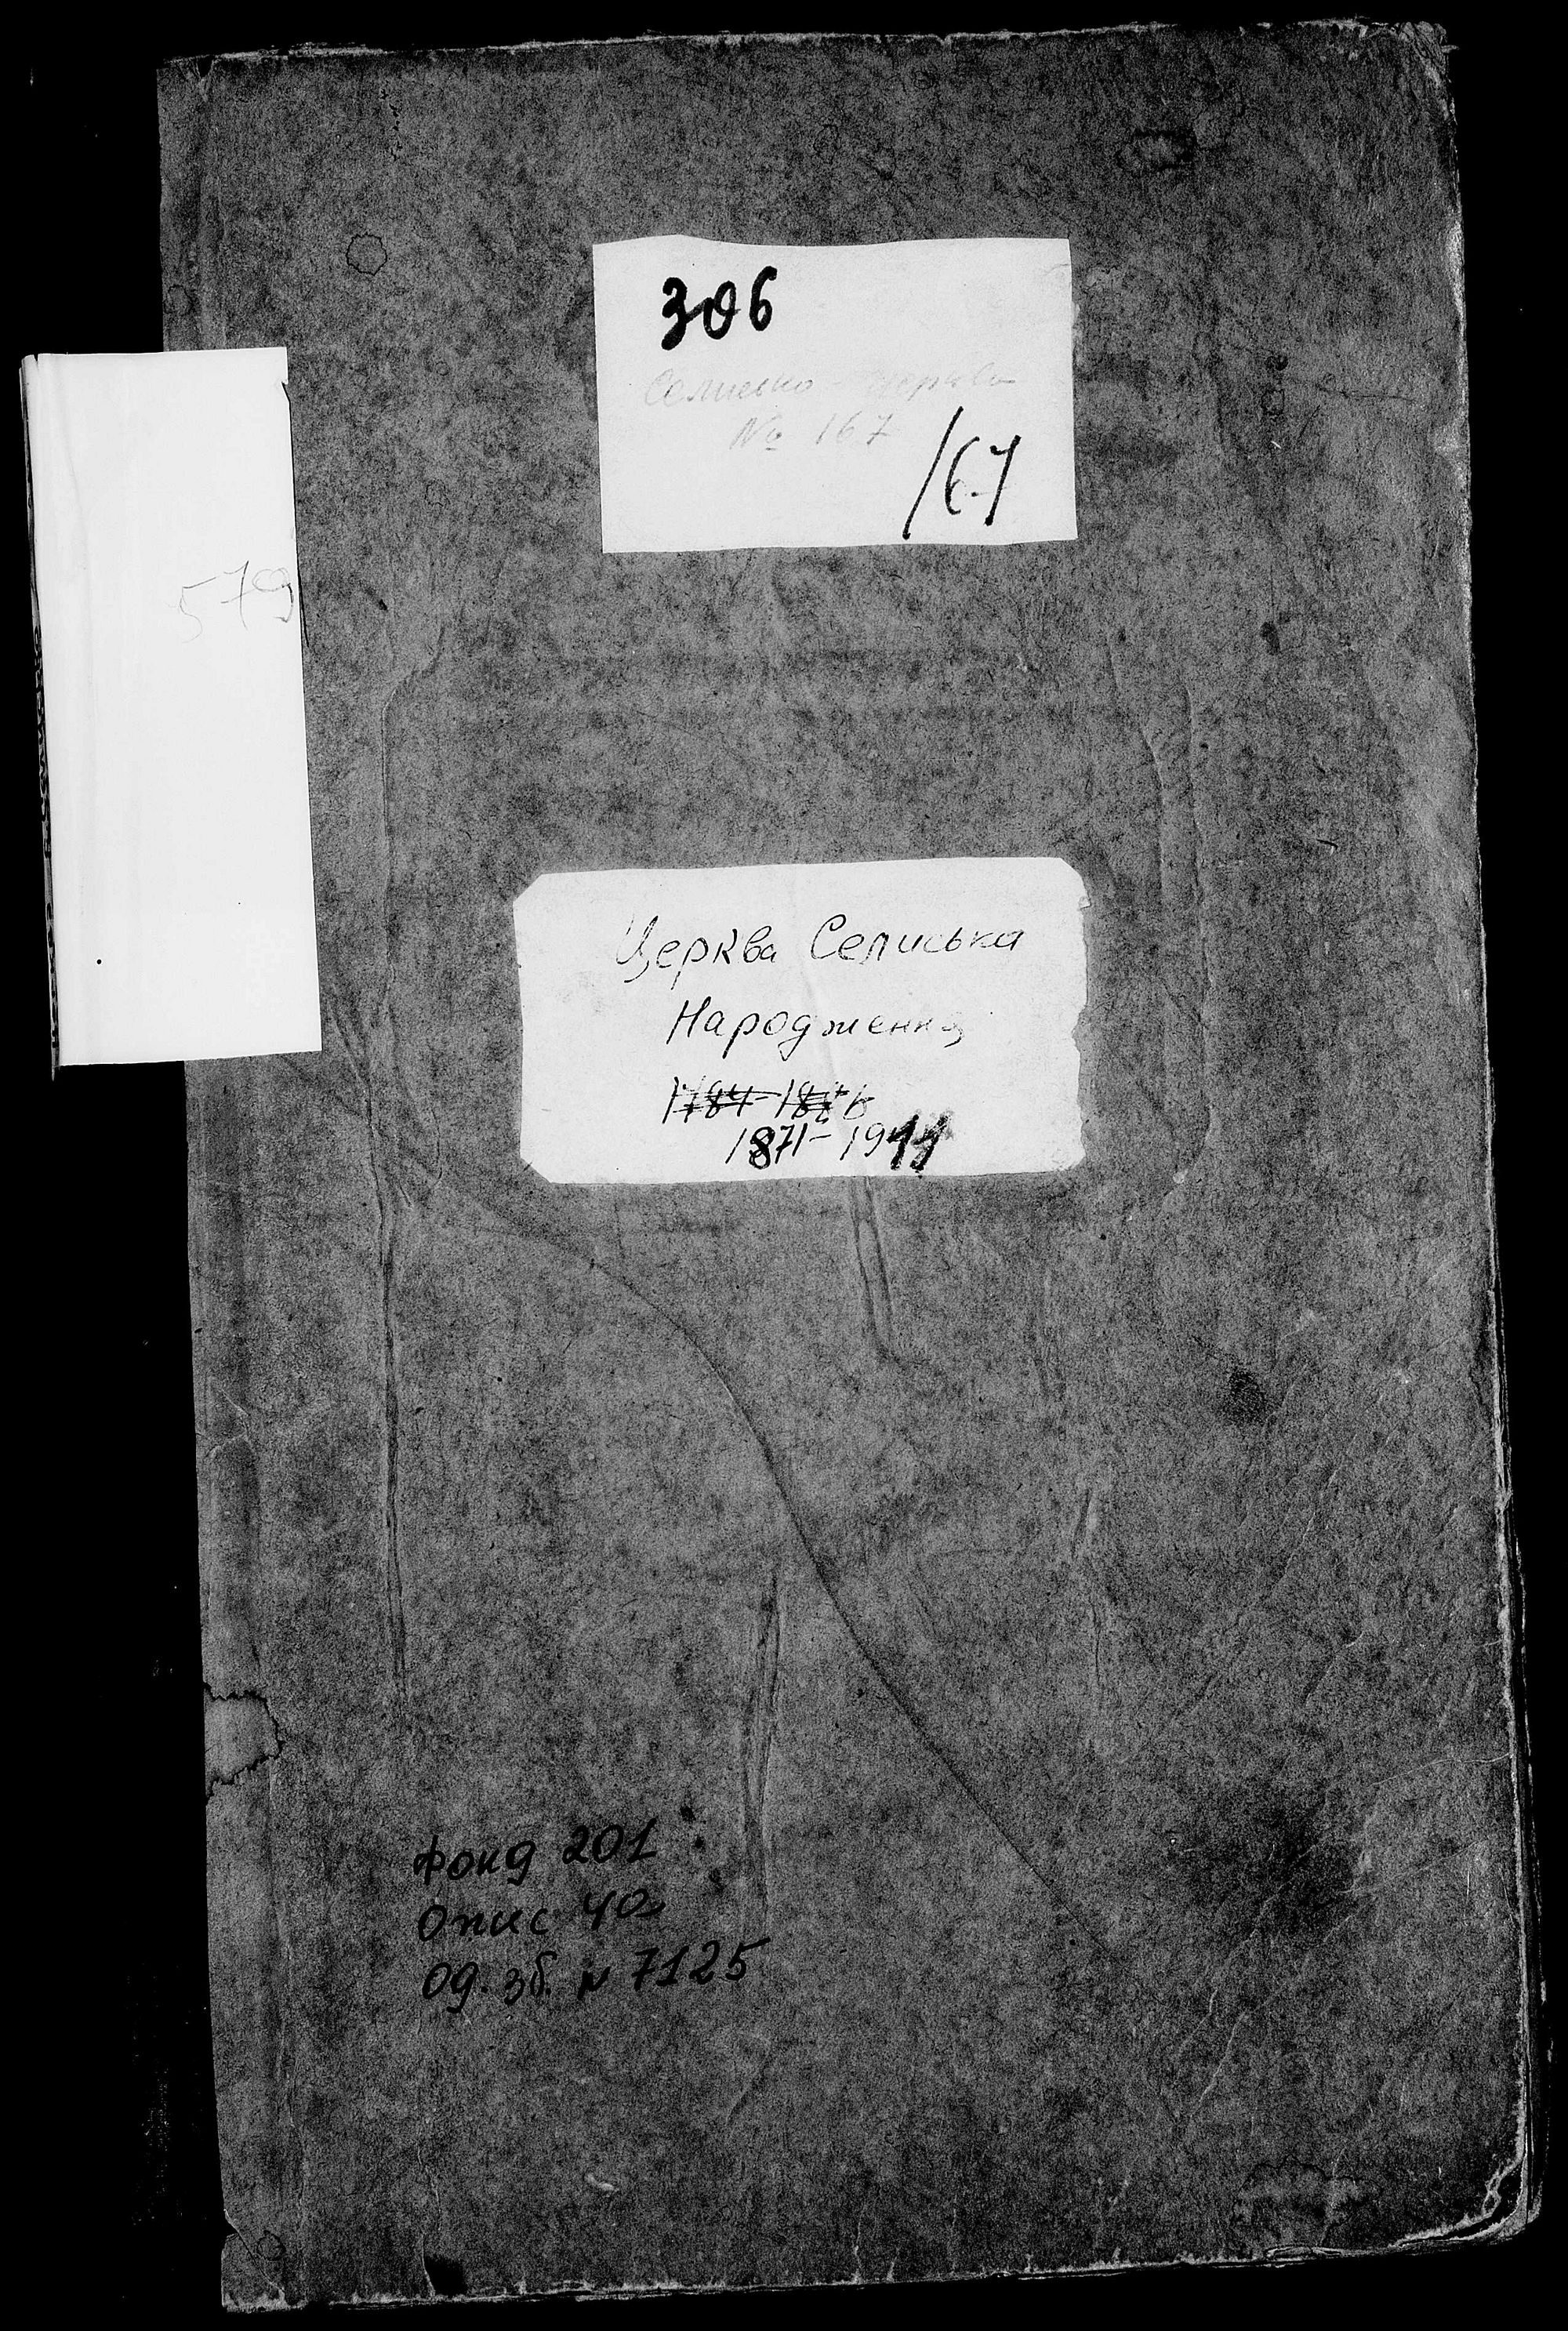 306
Селисько - церква
№ 167
167
579
Церква Селиська
Народження
1871-1911
Фонд 201
Опис 4а
Од. зб. № 7125